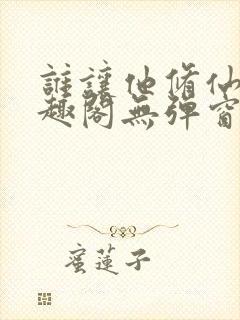 誰讓他脩仙
趣閣無彈窗
蜜蓮子